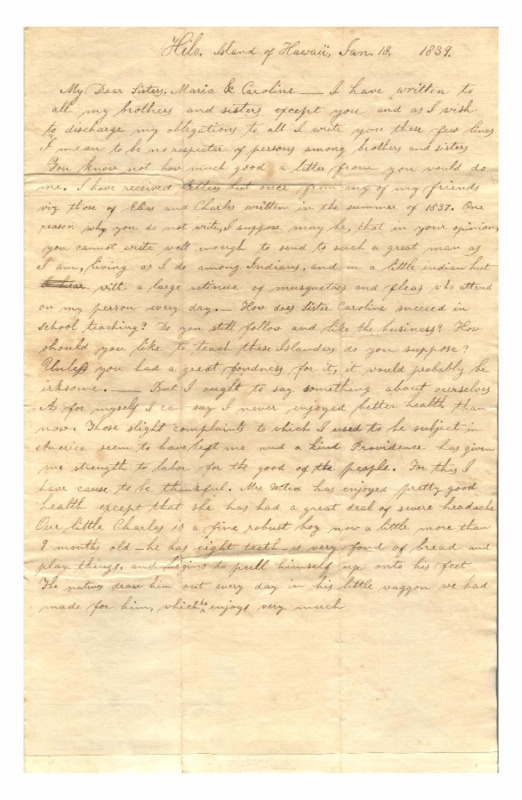 Hilo. Island of Hawaii, Jan. 18. 1839.
My Dear Sisters, Maria & Caroline — I have written to
all my brothers and sisters except you and as I wish
to discharge my obligations to all I write you these few lines
I mean to be no respecter of persons among brothers and sisters
You know not how much good a letter from you would do
me. I have received letters but once from any of my friends
viz those of Eliza and Charles written in the summer of 1837. One
reason why you do not write, I suppose may be, that in your opinion,
you cannot write well enough to send to such a great man as
I am, living as I do among Indians, and in a little indian hut
with a large retinue of musquetoes and fleas who attend
on my person every day. — How does Sister Caroline succeed in
school teaching? Do you still follow and like the business? How
should you like to teach these Islanders do you suppose?
Unless you had a great fondness for it, it would probably be
irksome. — But I ought to say something about ourselves
As for myself I can say I never enjoyed better health than
now. Those slight complaints to which I used to be subject in
America seem to have left me and a kind Providence has given
me strength to labor for the good of the people. For this I
have cause to be thankful. Mrs has enjoyed pretty good
health except that she has had a great deal of severe headache
Our little Charles is a fine robust boy now a little more than
9 months old — he has eight teeth — is very fond of bread and
play things, and begins to pull himself up onto his feet
The natives draw him out every day in his little waggon we had
made for him, which he enjoys very much